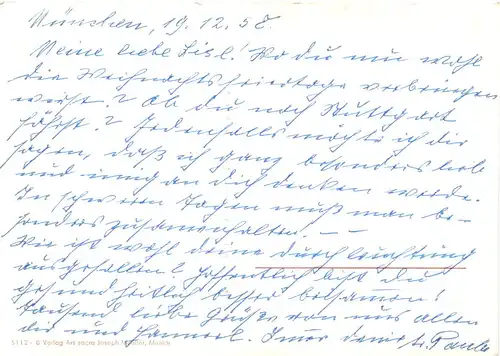 München, 19.12.58.
Meine liebe Lisl! Wo du nun wohl
die Weihnachtsfeiertage verbringen
wirst? Ob du nach Stuttgart
fährst? Jedenfalls möchte ich dir
sagen, daß ich ganz besonders lieb
und innig an dich denken werde.
In schweren Tagen muß man be-
sonders zusammenhalten. – –
Wie ist wohl deine Durchleuchtung
ausgefallen? Hoffentlich bist du
gesundheitlich besser beisammen!
Tausend liebe Grüße von uns allen
dir und Immer deine
5112 - © Verlag Ars sacra Joseph Müller, Munich